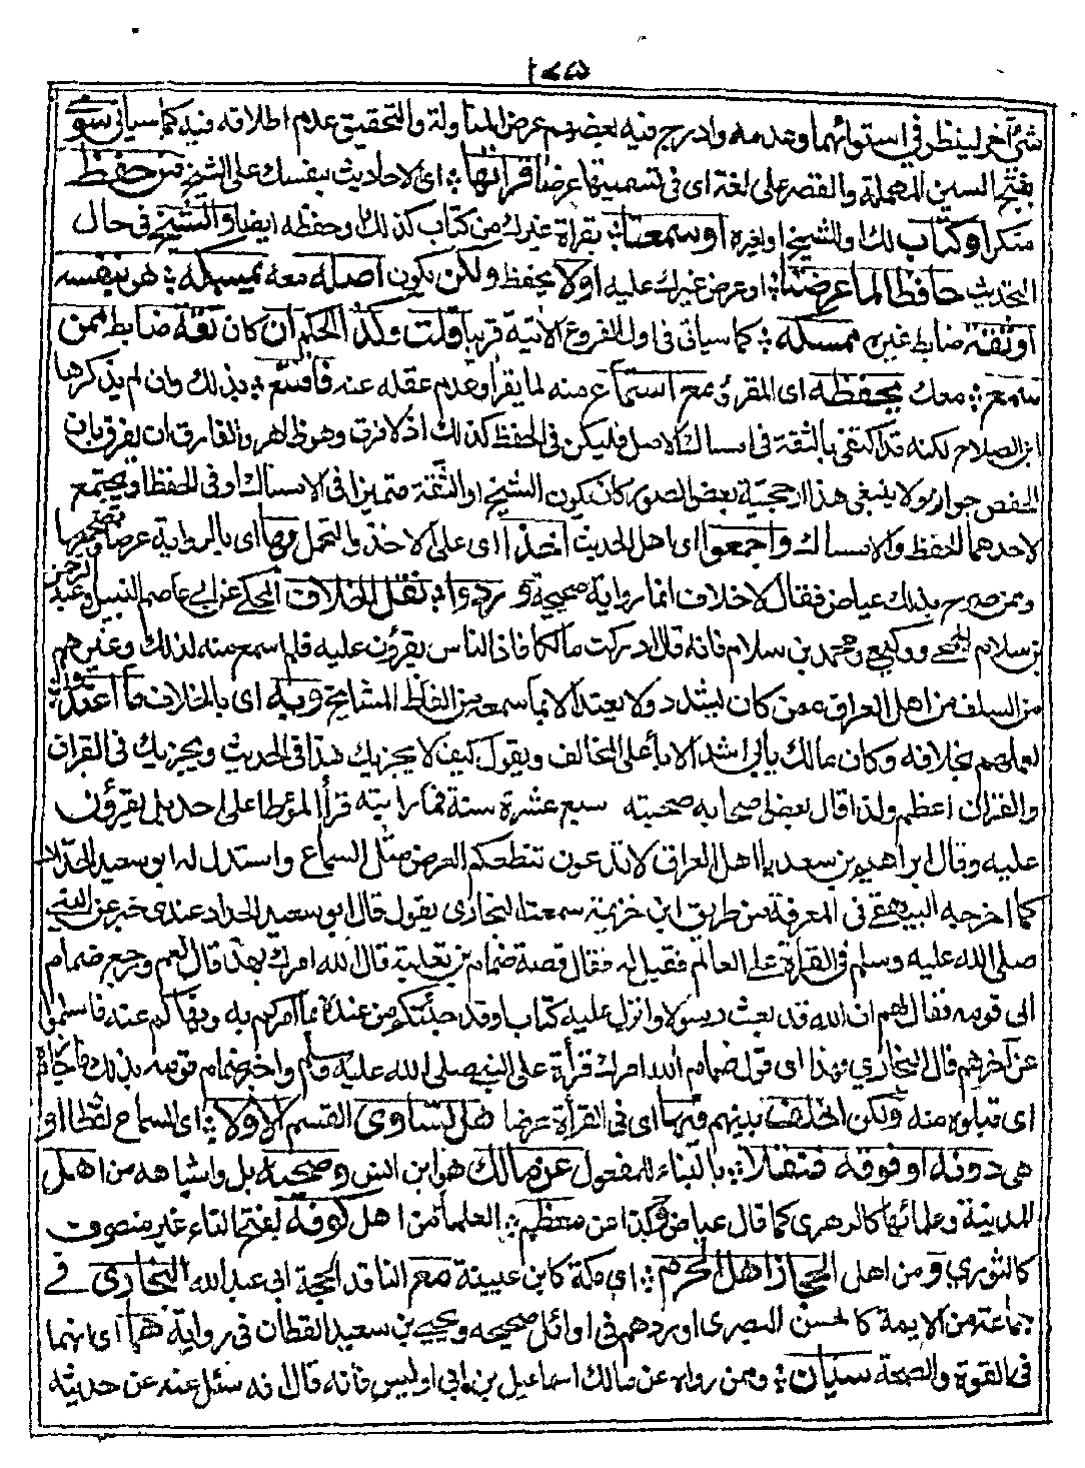 ١٧٥
شئ آخر لينظر في استوائهما وعدمه وادرج فيه بعضهم عرض المناولة والتحقيق عدم اطلاقه فيه كما سياتي سوى
بفتح السين المهملة والقصر على لغة اى في تسميتها عرضا قرأتها اى الاحاديث بنفسك على الشيخ من حفظ
منك او كتاب لك او للشيخ او لغيره او سمعتا بقراة غيرك من كتاب كذلك او حفظه ايضا والشيخ في حال
التحديث حافظ لما عرضتا او عرض غيرك عليه اولا يحفظ ولكن يكون اصله معه يمسكه هو بنفسه
او ثقة ضابط غيره ممسكه كما سياتي في اول الفروع الآتية قريبا قلت وكذا الحكم ان كان ثقة ضابط ممن
سمع معك يحفظه اى المقروء مع استماع منه لما يقرأ وعدم غفلة عنه فاقتنع بذلك وان لم يذكرها
ابن الصلاح لكنه قد اكتفى بالثقة في امساك الاصل فليكن في الحفظ كذلك اذ لا فرق وهو ظاهر والفارق ان يفرق بان
الحفظ خوان ولا ينبغي هذا ارجحية بعض الصور كان يكون الشيخ او الثقة متميزا في الامساك او في الحفظ او يجتمع
لاحدهما الحفظ والامساك واجمعوا اى اهل الحديث اخذا اى على الاخذ والتحمل بها اى بالرواية عرضا وتصحيحها
وممن صرح بذلك عياض فقال لاخلاف انها رواية صحيحة وردوا نقل الخلاف المحكي عن ابي عاصم النبيل وعبد الرحمن
بن سلام الجمحي ووكيع ومحمد بن سلام فانه قال ادركت مالكا فاذا الناس يقرؤن عليه فلم اسمع منه لذلك وغيرهم
من السلف من اهل العراق ممن كان يشدد ولا يعتد الا بما سمعه من الفاظ المشايخ وبه اى بالخلاف ما اعتدوا
لعملهم بخلافه وكان مالك يأبى اشد الاباء على المخالف ويقول كيف لا يجزيك هذا في الحديث ويجزيك في القران
والقران اعظم ولذا قال بعض اصحابه صحبته سبع عشرة سنة فما رايته قرأ المؤطا على احد بل يقرؤن
عليه وقال ابراهيم بن سعد يا اهل العراق لا تدعون تنطعكم العرض مثل السماع واستدل له ابو سعيد الحداد
كما اخرجه البيهقي في المعرفة من طريق ابن خزيمة سمعت البخاري يقول قال ابو سعيد الحداد عندي خبر عن النبي
صلى الله عليه وسلم في القراءة على العالم فقيل له فقال قصة ضمام بن ثعلبة قال آلله امرك بهذا قال نعم ورجع ضمام
الى قومه فقال لهم ان الله قد بعث رسولا وانزل عليه كتابا وقد جئتكم من عنده بما امركم به ونهاكم عنه فاسلموا
عن آخرهم قال البخاري فهذا اى قول ضمام آلله امرك قرأة على النبي صلى الله عليه وسلم واخبر ضمام قومه بذلك فاجازوه
اى قبلوه منه ولكن الخلف بينهم فيها اى في القرأة عرضا هل تساوى القسم الاولا اى السماع لفظا او
هى دونه او فوقه فنقلا بالبناء للمفعول عن مالك هو ابن انس وصحبه بل واشياخه من اهل
المدينة وعلمائها كالزهري كما قال عياض وكذا عن معظم العلما من اهل كوفة بفتح التاء غير منصرف
كالثوري ومن اهل الحجاز اهل الحرم اى مكة كابن عيينة مع الناقد الحجة ابي عبد الله البخاري في
جماعة من الايمة كالحسن البصري اوردهم في اوائل صحيحه ويحيى بن سعيد القطان في رواية هما اى انهما
في القوة والصحة سيان وممن رواه عن مالك اسماعيل بن ابي اويس فانه قال انه سئل عنه عن حديثه